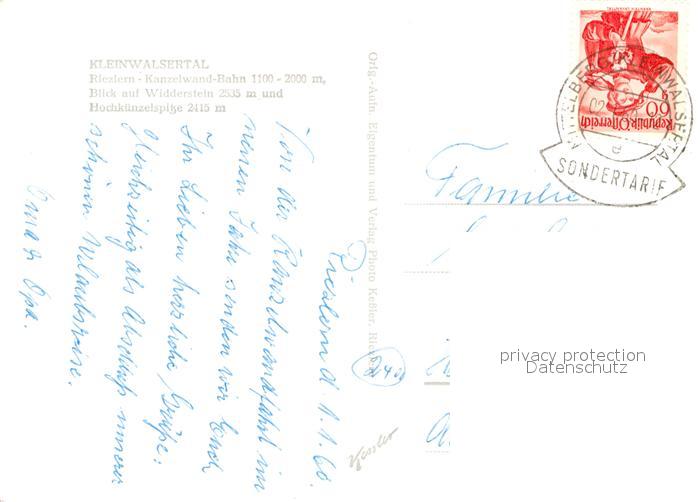 KLEINWALSERTAL
Riezlern - Kanzelwand-Bahn 1100 - 2000 m,
Blick auf Widderstein 2535 m und
Hochkünzelspitze 2415 m
Orig.-Aufn. Eigentum und Verlag Photo Keßler, Riez
Riezlern d. 1.1.60.
Von der Kanzelwandfahrt im
neuen Jahr senden wir Euch
Ihr Lieben herzliche Grüße.
Gleichzeitig als Abschluß unserer
schönen Urlaubsreise.
Oma & Opa.
Familie
24a
Kessler
60
Republik Österreich
MITTELBERG KLEINWALSERTAL
02
e
SONDERTARIF
privacy protection
Datenschutz